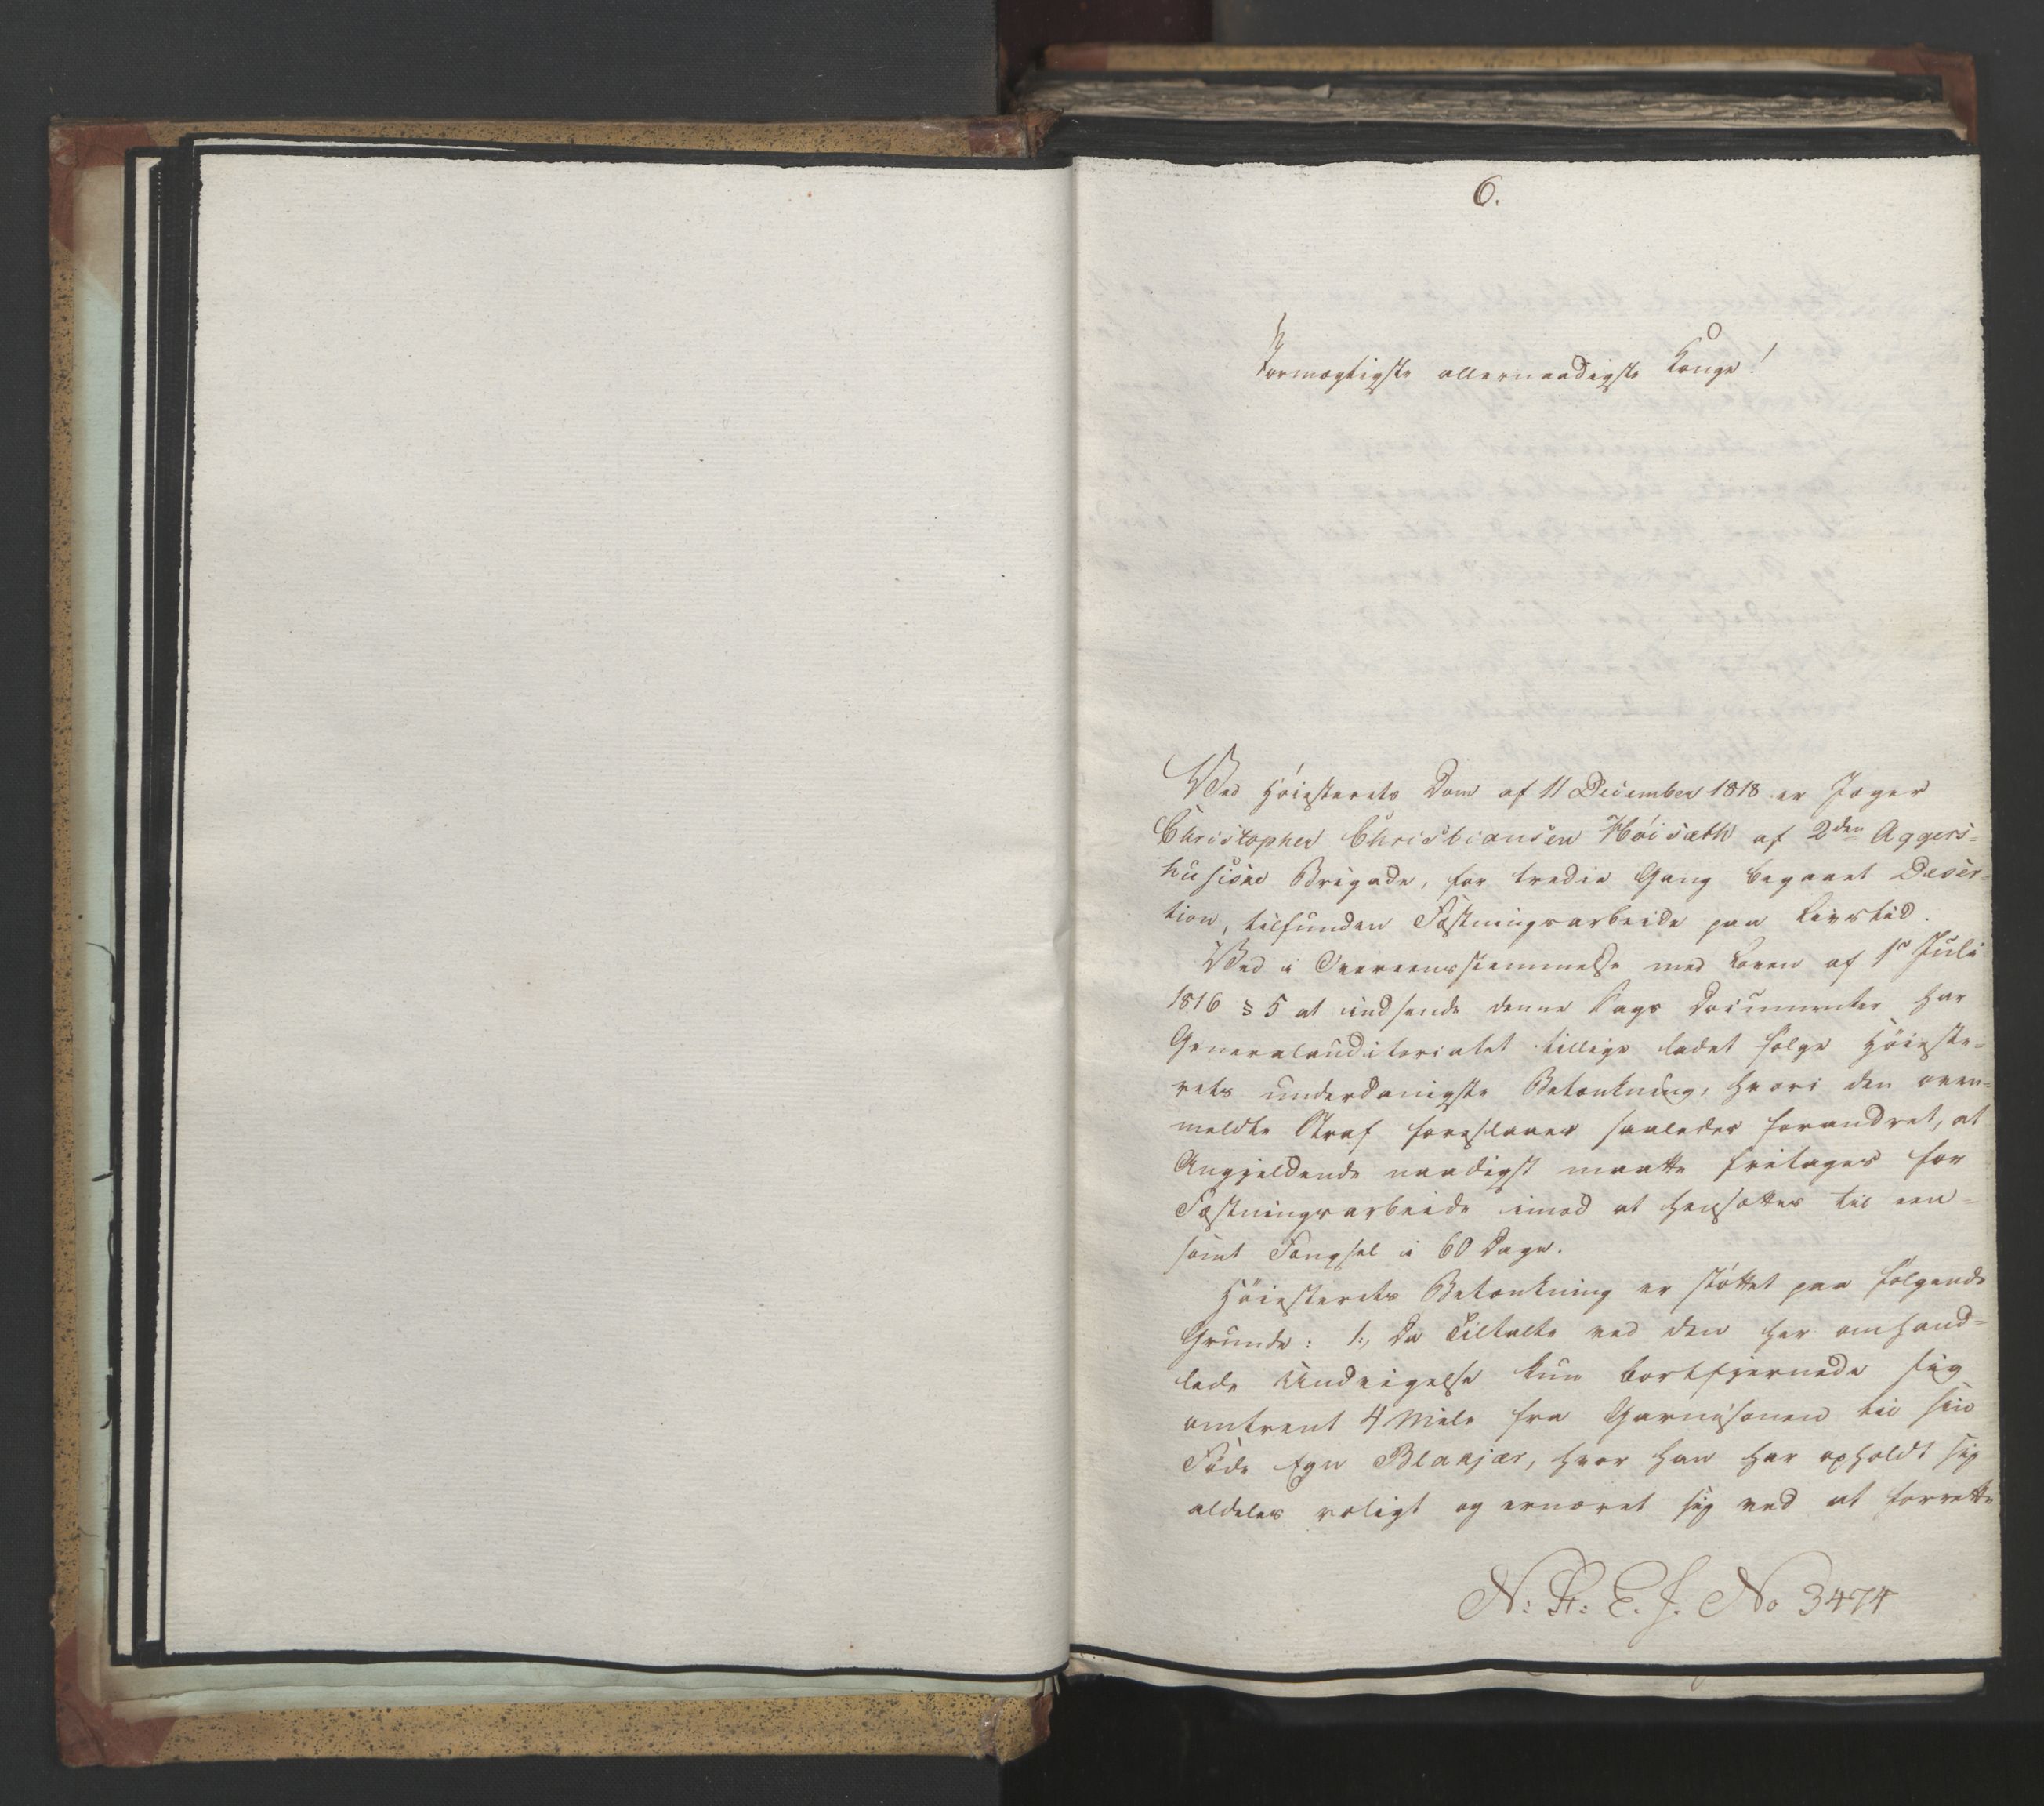 6.
Stormægtigste allernaadigste Konge!
Ved Høiesterets Dom af 11 December 1818 er Jæger
Christopher Christiansen Høisæth af 2den Aggers-
husiske Brigade, for tredie Gang begaaet Deser-
tion, tilfunden Fæstningsarbeide paa Livstid.
Ved i Overeensstemmelse med Loven af 1ste Juli
1816 § 5 at indsende denne Sags Documenter har
Generalauditoriatet tillige ladet følge Høieste-
rets underdanigste Betænkning, hvori den oven-
meldte Straf foreslaaes saaledes forandret, at
Angjeldende naadigst maatte fritages for
Fæstningsarbeide imod at hensættes til een-
somt Fængsel i 60 Dage.
Høiesterets Betænkning er støttet paa følgende
Grunde: 1., Da Tiltalte ved den her omhand-
lede Undvigelse kun bortfjernede sig
omtrent 4 Mile fra Garnisonen til sin
Føde Egn Blakjær, hvor han har opholdt sig
aldeles roligt og ernæret sig ved at forrette
N: St: E. J. No 3474